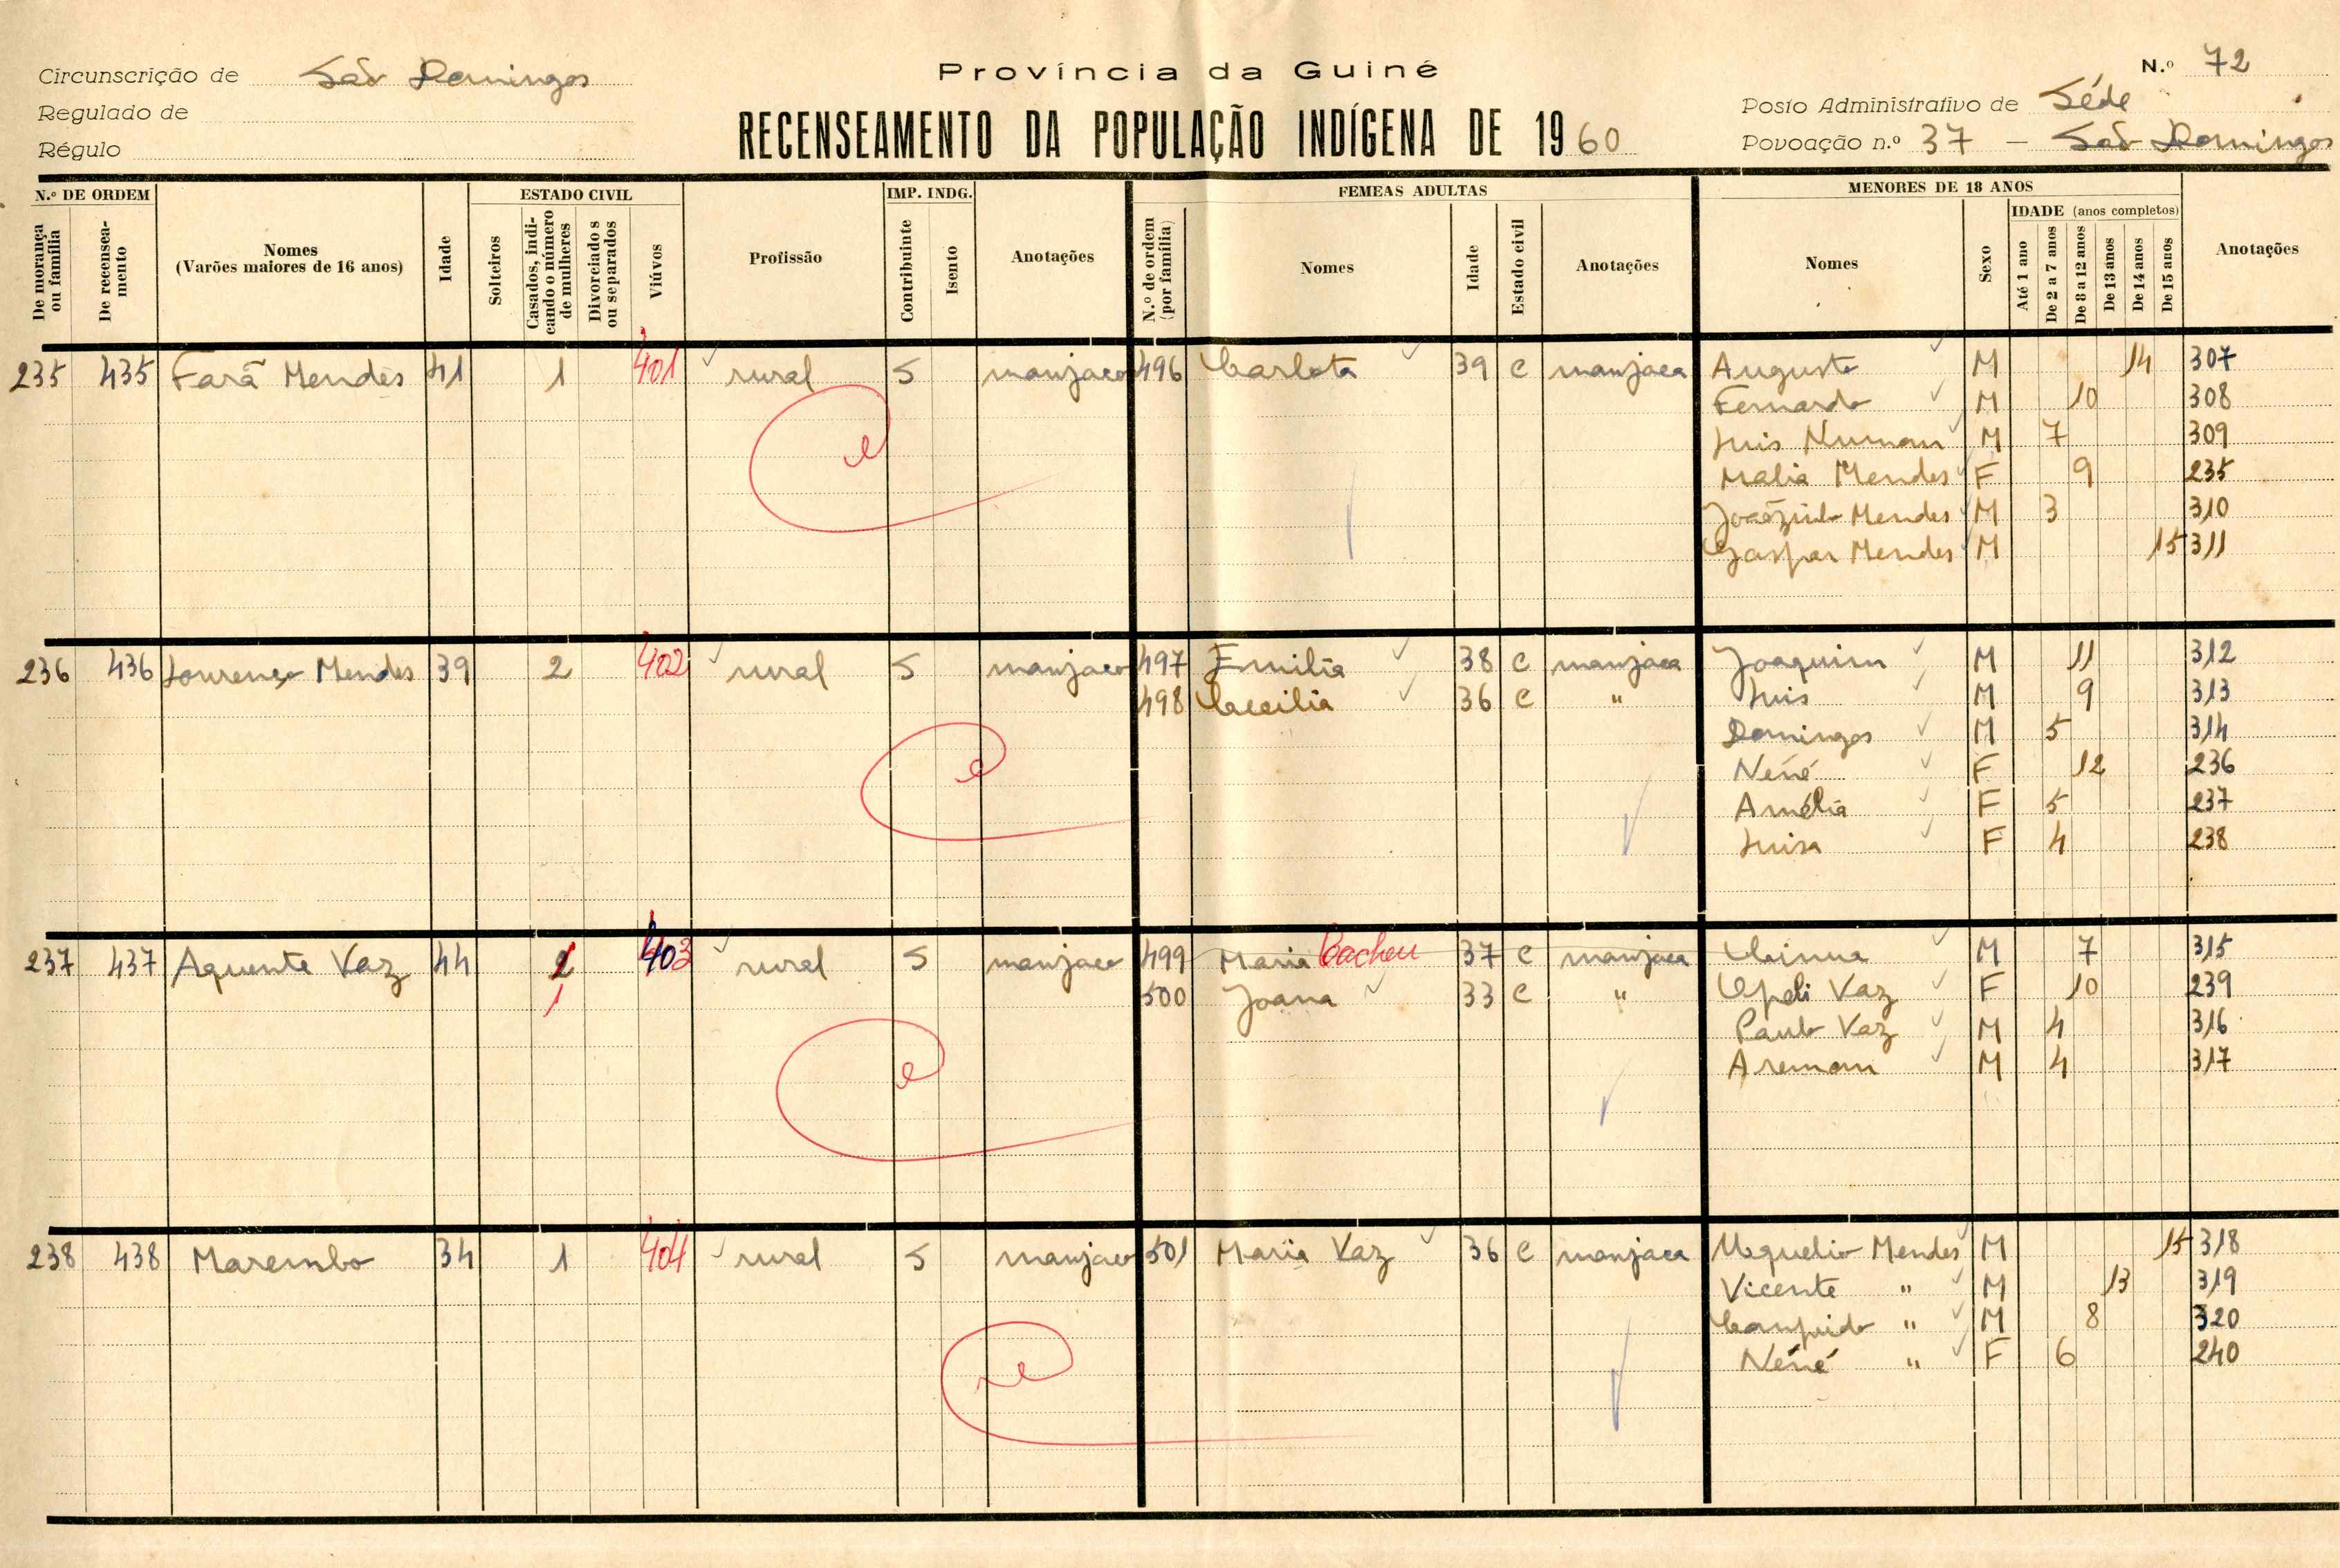 Província da Guiné
RECENSEAMENTO DA POPULAÇÃO INDÍGENA DE 1960
Circunscrição de São Domingos
Regulado de
Régulo
N.º 72
Posto Administrativo de Séde
Povoação n.º 37 — São Domingos
N.º DE ORDEM
De morança ou família
De recenseamento
Nomes
(Varões maiores de 16 anos)
Idade
ESTADO CIVIL
Solteiros
Casados, indicando o número de mulheres
Divorciados ou separados
Viúvos
Profissão
IMP. INDG.
Contribuinte
Isento
Anotações
FEMEAS ADULTAS
N.º de ordem (por família)
Nomes
Idade
Estado civil
Anotações
MENORES DE 18 ANOS
Nomes
Sexo
IDADE (anos completos)
Até 1 ano
De 2 a 7 anos
De 8 a 12 anos
De 13 anos
De 14 anos
De 15 anos
Anotações
235 435 Fará Mendes 41 1 401 rural S manjaco 496 Carlota 39 C manjaca Augusto M 14 307
Fernando M 10 308
Luis Numan M 7 309
Malia Mendes F 9 235
Mendes M 3 310
Gaspar Mendes M 15 311
236 436 Lourenço Mendes 39 2 402 rural S manjaco 497 Emilia 38 C manjaca Joaquim M 11 312
498 Cecilia 36 C " Luis M 9 313
Domingos M 5 314
Nené F 12 236
Amélia F 5 237
Luisa F 4 238
237 437 Aquente Vaz 44 2 403 rural S manjaco 499 Maria Cacheu 37 C manjaca M 7 315
1 500 Joana 33 C " Vaz F 10 239
Paulo Vaz M 4 316
Areman M 4 317
238 438 Marembo 34 1 404 rural S manjaco 501 Maria Vaz 36 C manjaca Mendes M 15 318
Vicente " M 13 319
" M 8 320
Nené " F 6 240